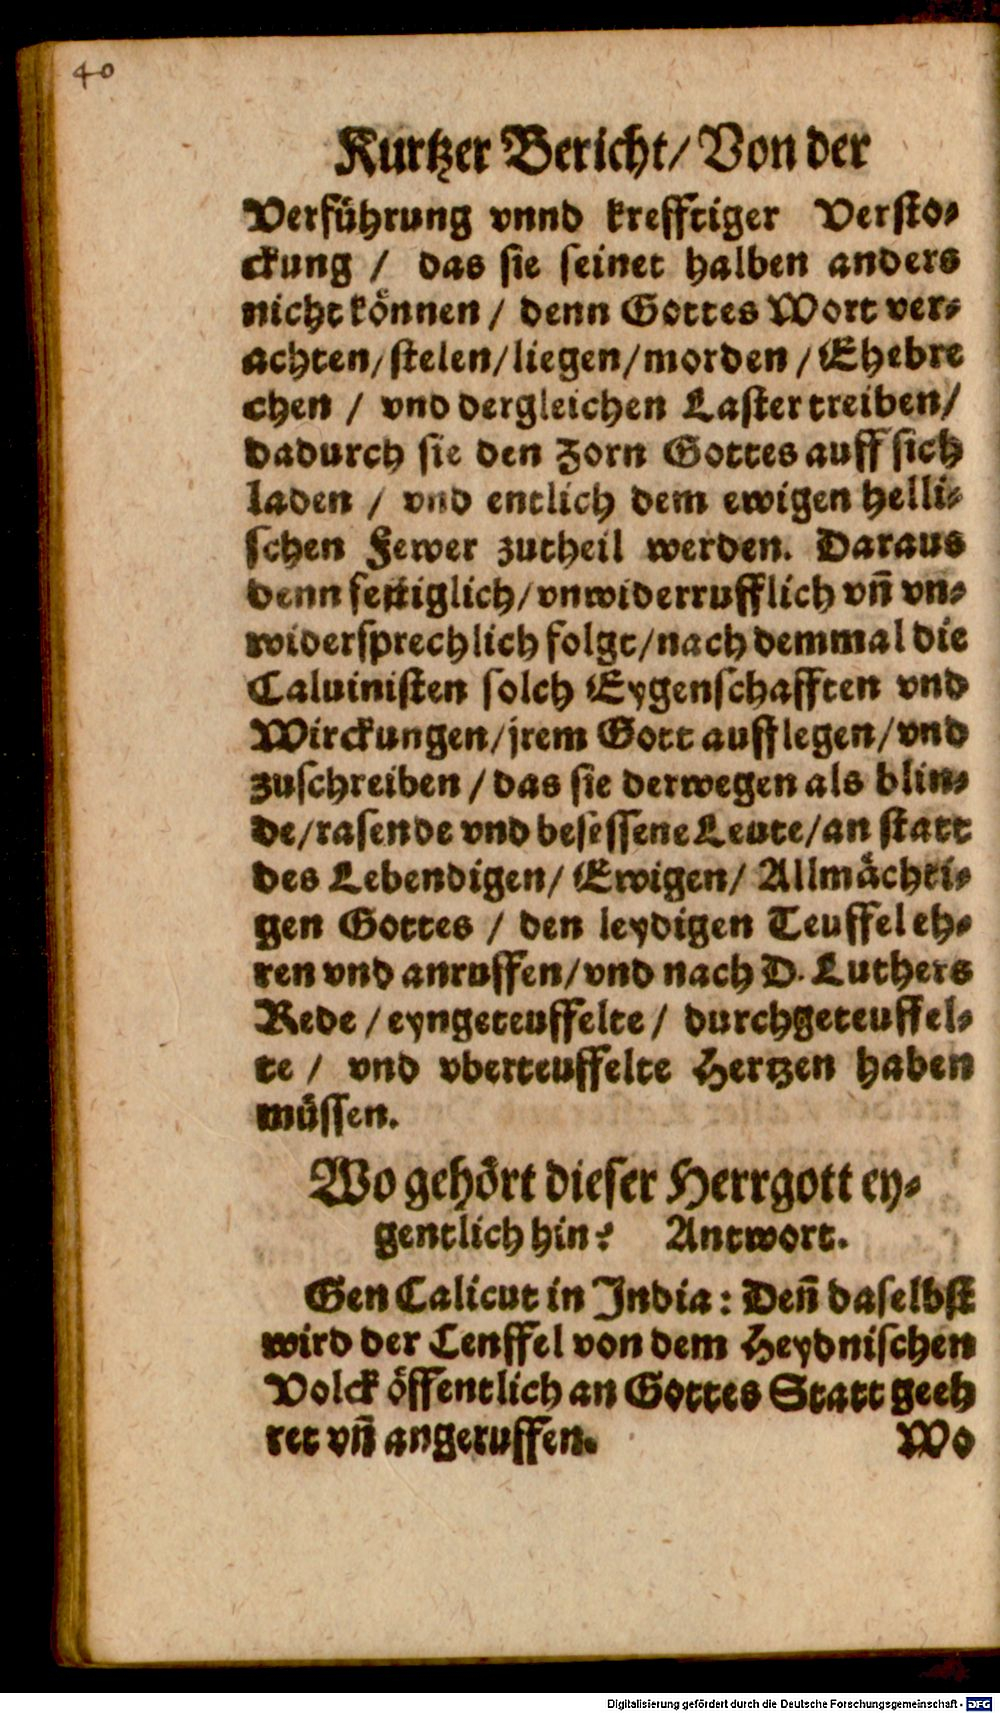 40
Kurtzer Bericht/ Von der
Verführung vnnd krefftiger Versto-
ckung / das sie seinet halben anders
nicht können / denn Gottes Wort ver-
achten/ stelen/ liegen/ morden / Ehebre
chen / vnd dergleichen Laster treiben/
dadurch sie den Zorn Gottes auff sich
laden / vnd entlich dem ewigen helli-
schen Fewer zutheil werden. Daraus
denn vnwiderrufflich vn̄ vn-
widersprechlich folgt/ nach demmal die
Caluinisten solch Eygenschafften vnd
Wirckungen/ jrem Gott aufflegen/ vnd
zuschreiben / das sie derwegen als blin-
de/ rasende vnd besessene Leute/ an statt
des Lebendigen/ Ewigen/ Allmächti-
gen Gottes / den leydigen Teuffel eh-
ren vnd anruffen/ vnd nach D. Luthers
Rede / eyngeteuffelte / durchgeteuffel-
te / vnd vberteuffelte Hertzen haben
müssen.
Wo gehört dieser Herrgott ey-
gentlich hin? Antwort.
Gen Calicut in India: Den̄ daselbst
wird der Tenffel von dem Heydnischen
Volck öffentlich an Gottes Statt geeh
ret vn̄ angeruffen. Wo
Digitalisierung gefördert durch die Deutsche Forschungsgemeinschaft - DFG